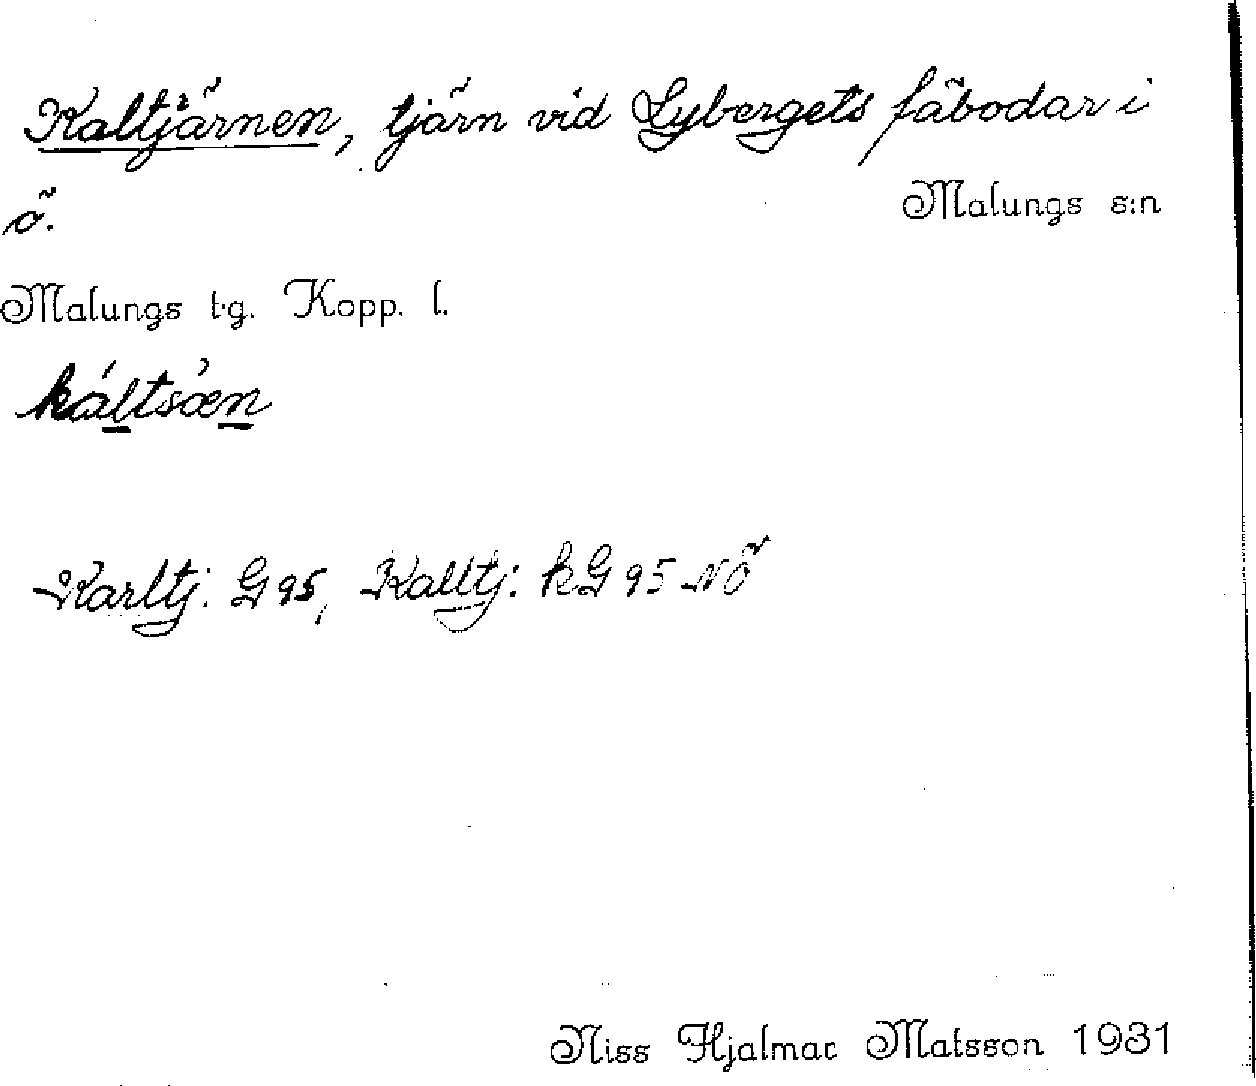 Kaltjärnen, tjärn vid Lybergets fäbodar i
ö.
Malungs s:n
Malungs t.g. Kopp. l.
káltsæ̀n
Karltj. G 95, Kalltj: kG 95 NÖ
Niss Hjalmar Matsson 1931